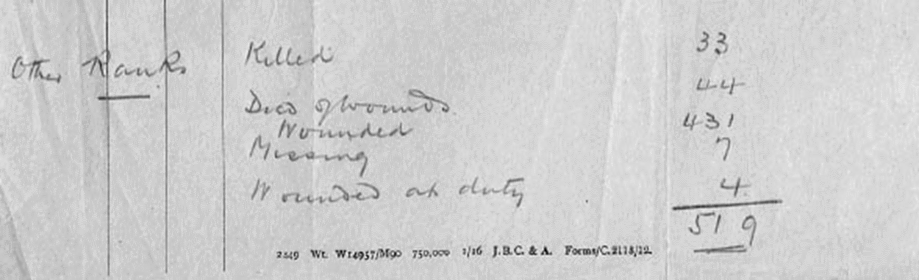 Other Ranks Killed 33
Died of Wounds 44
Wounded 431
Missing 7
Wounded at duty 4
519
2449 Wt. W14957/M90 750,000 1/16 J.B.C. & A. Forms/C.2118/12.